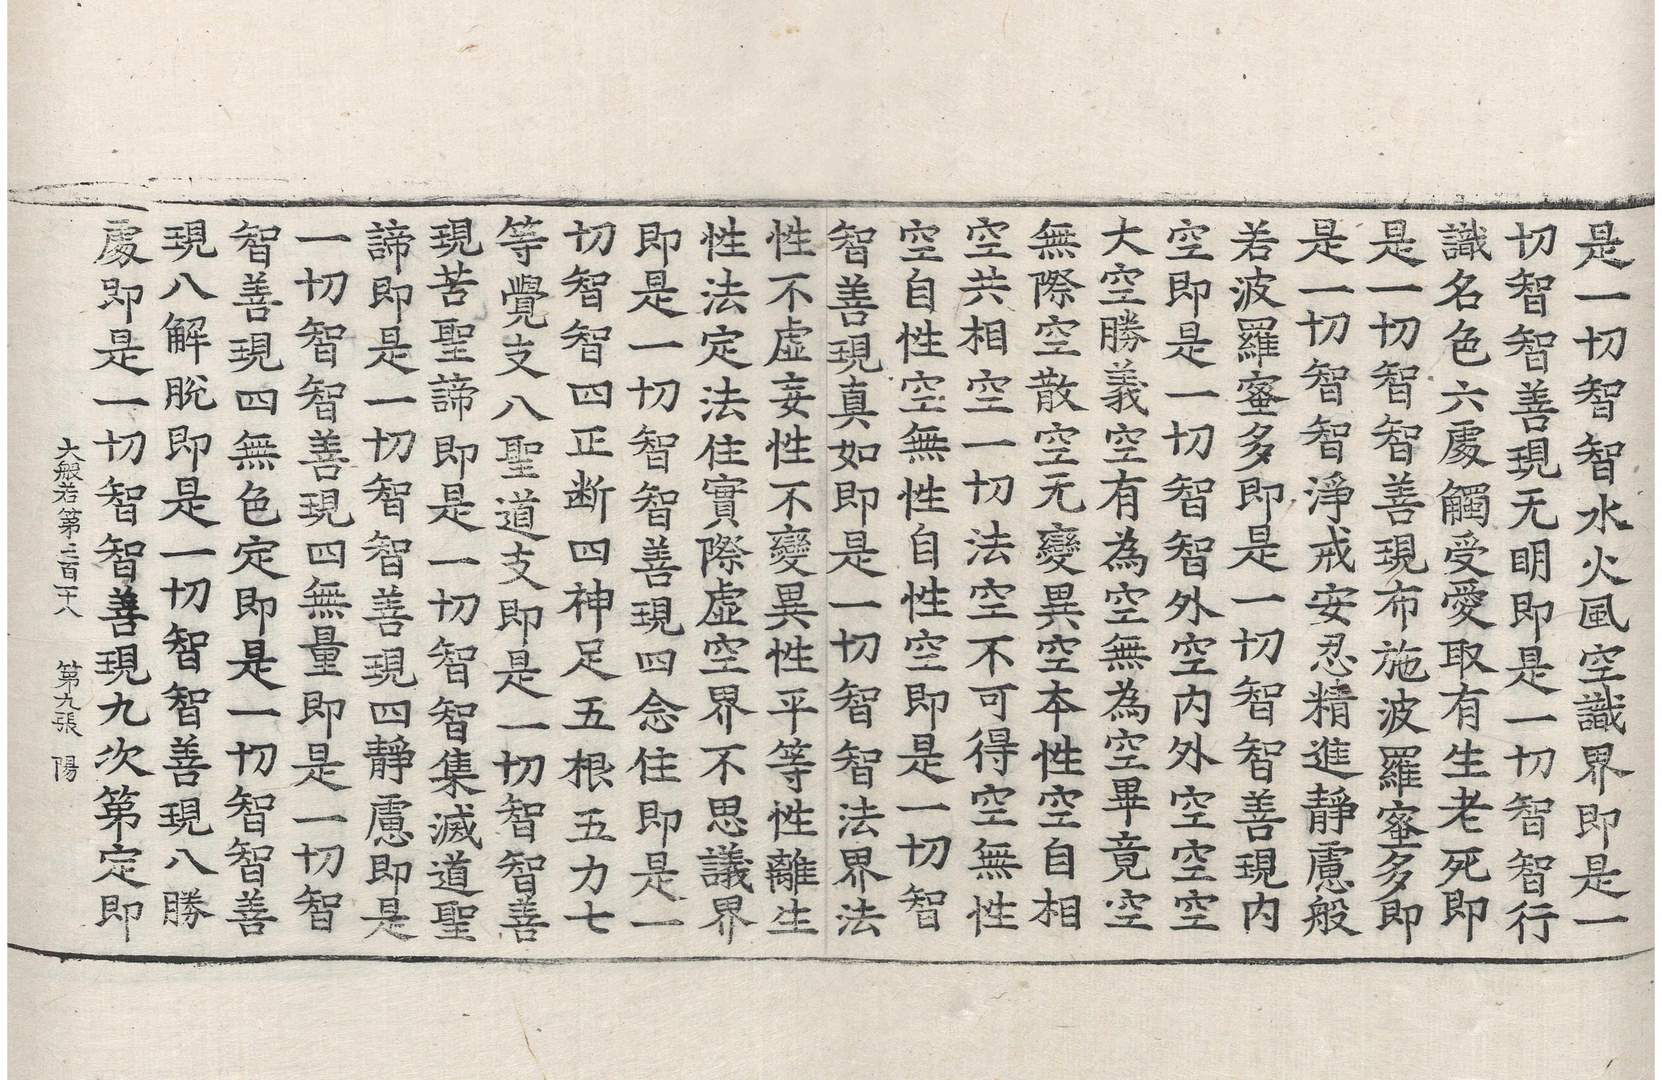 是一切智智水火風空識界即是一
切智智善現无明即是一切智智行
識名色六處觸受愛取有生老死即
是一切智智善現布施波羅蜜多即
是一切智智淨戒安忍精進靜慮般
若波羅蜜多即是一切智智善現内
空即是一切智智外空内外空空空
大空勝義空有為空無為空畢竟空
無際空散空无變異空本性空自相
空共相空一切法空不可得空無性
空自性空無性自性空即是一切智
智善現真如即是一切智智法界法
性不虛妄性不變異性平等性離生
性法定法住實際虛空界不思議界
即是一切智智善現四念住即是一
切智智四正断四神足五根五力七
等覺支八聖道支即是一切智智善
現苦聖諦即是一切智智集滅道聖
諦即是一切智智善現四靜慮即是
一切智智善現四無量即是一切智
智善現四無色定即是一切智智善
現八解脫即是一切智智善現八勝
處即是一切智智善現九次第定即
大般若第三百十八 第九張 陽